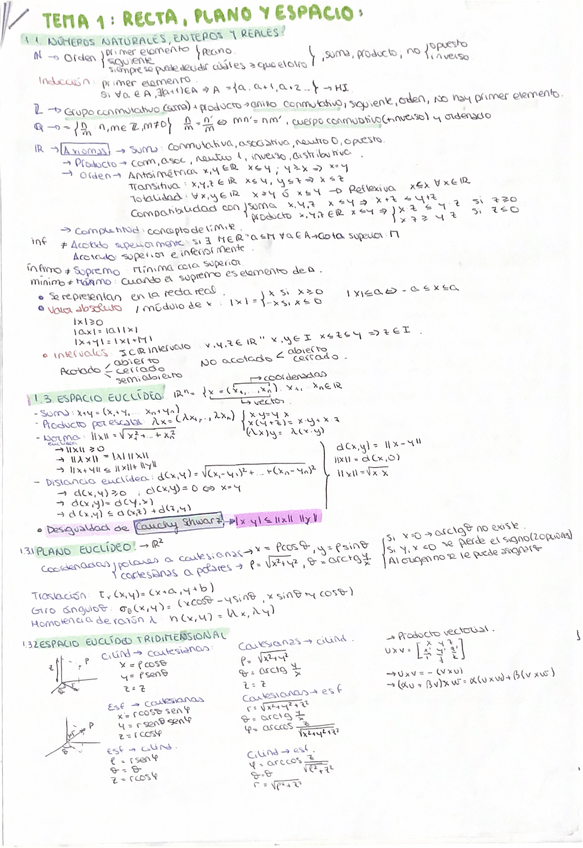 TEMA 1: RECTA, PLANO Y ESPACIO:
1.1. NÚMEROS NATURALES, ENTEROS Y REALES
N → Orden { primer elemento } Peano.
siguiente
siempre se puede decidir cuál es > que el otro } , suma, producto, no { opuesto
inverso
Inducción: primer elemento.
Si ∀a∈A, ∃(a+1)∈A ⇒ A = {a, a+1, a+2...} → HI
Z → Grupo conmutativo (suma) + producto → anillo conmutativo, siguiente, orden, no hay primer elemento.
Q → = { n/m n, m∈Z, m≠0 } n/m = n'/m' ⇔ mn' = nm', cuerpo conmutativo (+inverso) y ordenado
IR → Axiomas → Suma: conmutativa, asociativa, neutro 0, opuesto.
→ Producto → com, asoc, neutro 1, inverso, distributiva.
→ Orden → Antisimétrica x,y∈IR x≤y, y≥x ⇒ x=y
Transitiva: x,y,z∈IR x≤y, y≤z ⇒ x≤z
Totalidad: ∀x,y∈IR x≥y ó x≤y → Reflexiva x≤x ∀x∈IR
Compatibilidad con { suma x,y,z x≤y ⇒ x+z ≤ y+z
producto x,y,z∈IR x≤y ⇒ { xz ≤ yz si z≥0
xz ≥ yz si z≤0
→ Completitud: concepto de límite.
inf ≠ Acotado superiormente: si ∃ M∈IR a≤M ∀a∈A → Cota superior: M
Acotado superior e inferiormente.
ínfimo ≠ Supremo: Mínima cota superior
mínimo ≠ Máximo: Cuando el supremo es elemento de A.
• Se representan en la recta real.
• Valor absoluto / módulo de x: |x| = { x si x≥0
-x si x≤0 |x|≤a ⇔ -a≤x≤a
|x|≥0
|ax| = |a||x|
|x+y| = |x|+|y|
• Intervalos I⊂IR intervalo x,y,z∈IR x,y∈I x≤z≤y ⇒ z∈I.
Acotado { abierto
cerrado
semiabierto No acotado < abierto
cerrado.
1.3. ESPACIO EUCLÍDEO IRⁿ = {x = (x₁, ..., xₙ): x₁, xₙ∈IR
→ coordenadas
→ vector
- Suma: x+y = (x₁+y₁, ... xₙ+yₙ)
- Producto por escalar λx = (λx₁, ..., λxₙ) { x·y = y·x
x(y+z) = x·y + x·z
(λx)y = λ(x·y)
- Norma: ||x|| = √x₁² + ... + xₙ²
euclídea
→ ||x|| ≥ 0
→ ||λx|| = |λ| ||x||
→ ||x+y|| ≤ ||x|| + ||y||
- Distancia euclídea: d(x,y) = √(x₁-y₁)² + ... + (xₙ-yₙ)²
→ d(x,y) ≥ 0, d(x,y) = 0 ⇔ x=y
→ d(x,y) = d(y,x)
→ d(x,y) ≤ d(x,z) + d(z,y)
d(x,y) = ||x-y||
||x|| = d(x,0)
||x|| = √x·x
• Desigualdad de Cauchy Shwarz → |x·y| ≤ ||x|| ||y||
1.3.1 PLANO EUCLÍDEO: → IR²
Coordenadas polares a cartesianas → x = ρcosθ, y = ρsenθ
cartesianas a polares → ρ = √x²+y², θ = arctg y/x
{ Si x=0 → arctgθ no existe.
Si y, x <0 se pierde el signo (2 opciones)
Al origen no se le puede asignar θ
Traslación: τᵥ(x,y) = (x+a, y+b)
Giro ángulo θ: σθ(x,y) = (xcosθ - ysenθ, x senθ + y cosθ)
Homotecia de razón λ: h(x,y) = (λx, λy)
1.3.2 ESPACIO EUCLÍDEO TRIDIMENSIONAL
Cilínd → cartesianas:
x = ρcosθ
y = ρsenθ
z = z
Esf → cartesianas
x = rcosθ senφ
y = rsenθ senφ
z = rcosφ
Esf → cilínd.
ρ = rsenφ
θ = θ
z = rcosφ
Cartesianas → cilínd.
ρ = √x²+y²
θ = arctg y/x
z = z
Cartesianas → esf
r = √x²+y²+z²
θ = arctg y/x
φ = arccos z/√x²+y²+z²
Cilínd → esf.
φ = arccos z/√ρ²+z²
θ=θ
r = √ρ²+z²
→ Producto vectorial.
→ u×v = -(v×u)
→ (αu + βv)×w = α(u×w) + β(v×w)